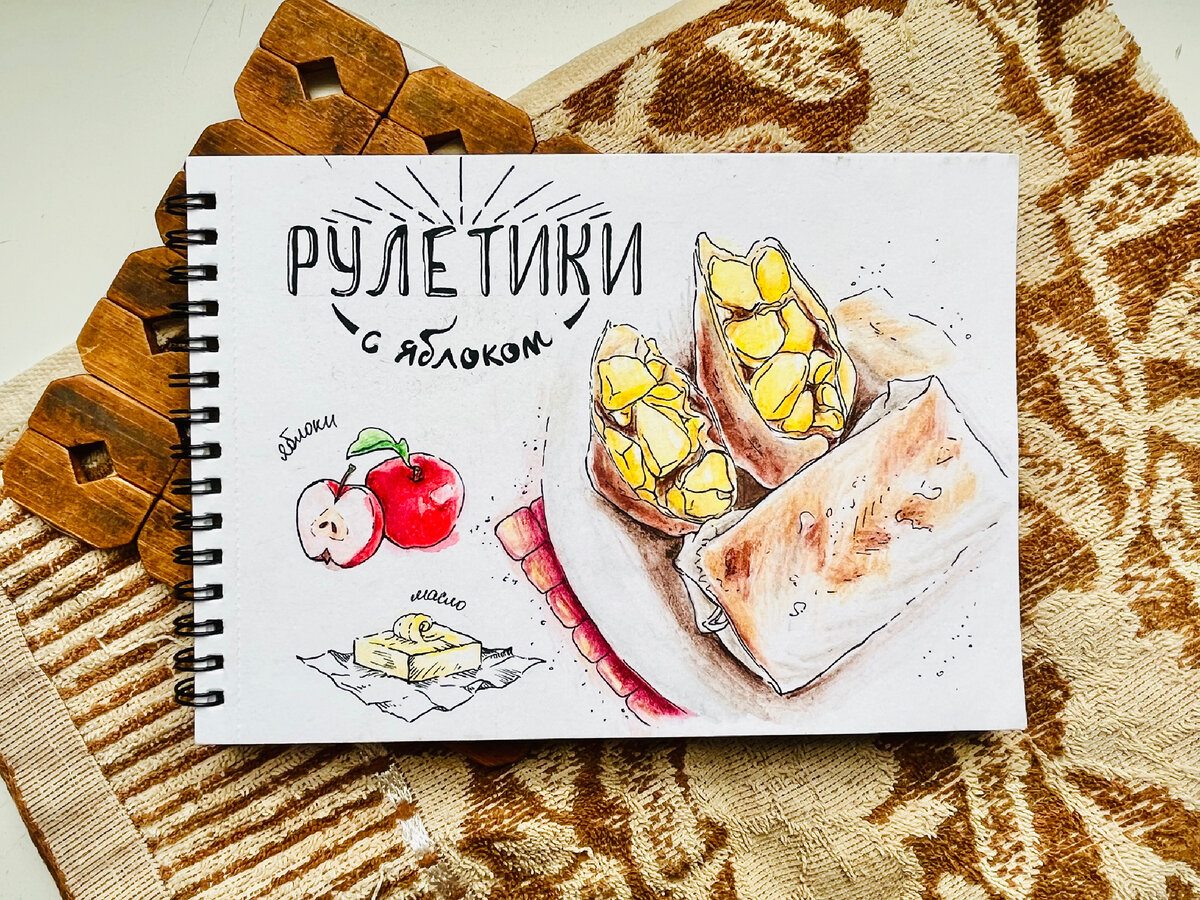 РУЛЕТИКИ
с яблоком
яблоки
масло